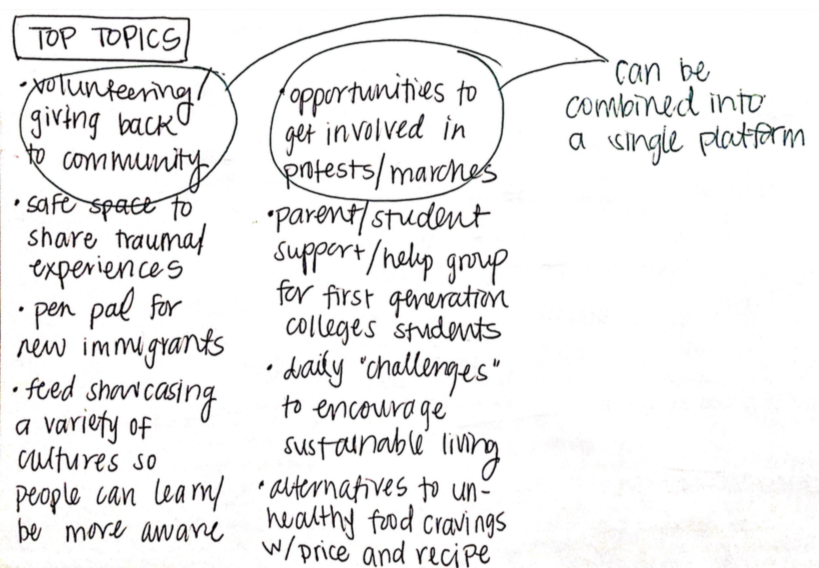 TOP TOPICS
• volunteering/
giving back
to community
• safe space to
share trauma/
experiences
• pen pal for
new immigrants
• feed showcasing
a variety of
cultures so
people can learn/
be more aware
• opportunities to
get involved in
protests/marches
• parent/student
support/help group
for first generation
colleges students
• daily "challenges"
to encourage
sustainable living
• alternatives to un-
healthy food cravings
w/price and recipe
can be
combined into
a single platform